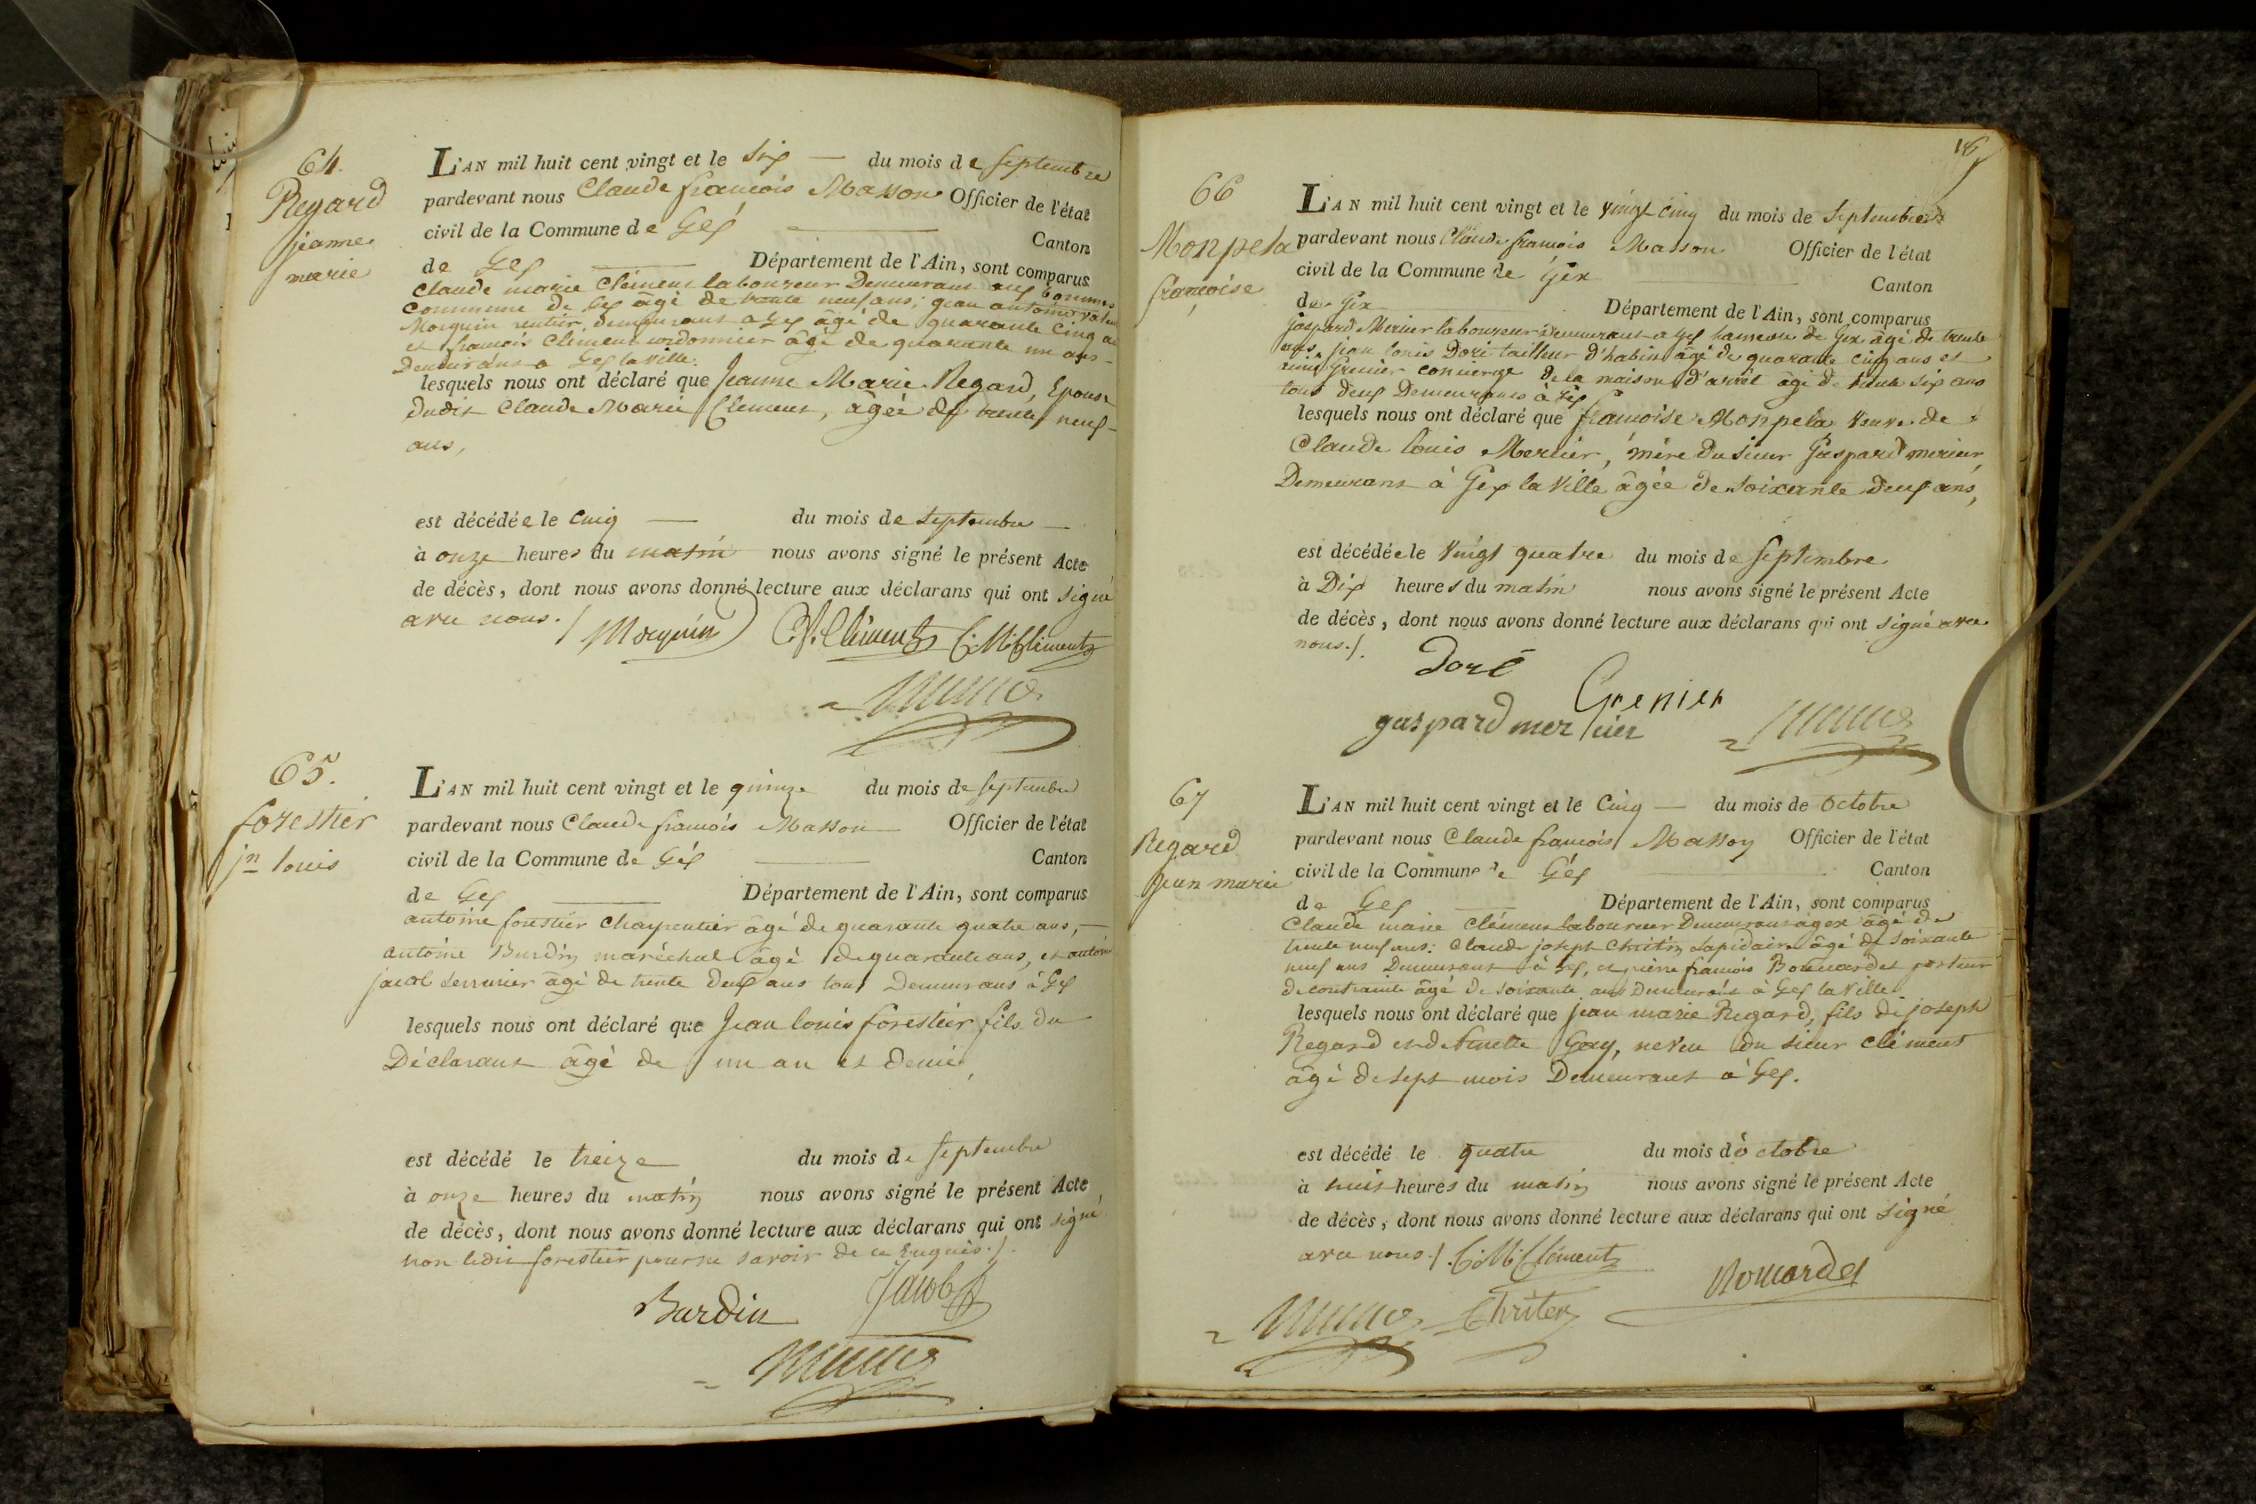 64.
Regard
jeanne
marie
L'AN mil huit cent vingt et le six du mois de septembre
pardevant nous Claude françois Masson Officier de l'état
civil de la Commune de Gex Canton
de Gex Département de l'Ain, sont comparus
Claude marie Clément laboureur Demeurant
commune de Gex âgé de trente neuf ans; jean antoine
Morquin rentier, demeurant a Gex âgé de quarante cinq
et françois Clement cordonnier âgé de quarante un ans
Demeurans a Gex la ville.
lesquels nous ont déclaré que Jeanne Marie Regard, Epouse
dudit Claude Marie Clement, âgée de trente neuf
ans,
est décédée le cinq du mois de septembre
à onze heures du matin nous avons signé le présent Acte
de décès, dont nous avons donné lecture aux déclarans qui ont signé
avec nous./ Morquin C.f.Clément C:M:Clément
65.
forestier
jn louis
L'AN mil huit cent vingt et le quinze du mois de septembre
pardevant nous Claude françois Masson Officier de l'état
civil de la Commune de Gex Canton
de Gex Département de l'Ain, sont comparus
antoine forestier Charpentier âgé de quarante quatre ans,
antoine Burdin maréchal âgé de quarante ans, et antoine
jacob serrurier âgé de trente deux ans tous Demeurans à Gex
lesquels nous ont déclaré que Jean louis forestier fils du
Déclarant âgé de un an et demie,
est décédé le treize du mois de septembre
à onze heures du matin nous avons signé le présent Acte
de décès, dont nous avons donné lecture aux déclarans qui ont signé
non ledit forestier pour ne savoir de ce Enquis./.
Burdin Jacob
66
Monpela
françoise
L'AN mil huit cent vingt et le vingt cinq du mois de septembre
pardevant nous Claude françois Masson Officier de l'état
civil de la Commune de Gex Canton
de Gex Département de l'Ain, sont comparus
gaspard Mercier laboureur Demeurant a hameau de Gex âgé de trente
ans, jean louis Doré tailleur d'habits âgé de quarante cinq ans et
Grenier concierge de la maison d'arrêt âgé de trente six ans
tous deux Demeurans à Gex
lesquels nous ont déclaré que françoise Monpela veuve de
Claude louis Mercier, mère du sieur Gaspard mercier
Demeurant à Gex la Ville âgée de soixante deux ans,
est décédée le vingt quatre du mois de septembre
à Dix heures du matin nous avons signé le présent Acte
de décès, dont nous avons donné lecture aux déclarans qui ont signé avec
nous./.
Doré
Grenier
gaspard mercier
67
Regard
Jean marie
L'AN mil huit cent vingt et le Cinq du mois de octobre
pardevant nous Claude françois Masson Officier de l'état
civil de la Commune de Gex Canton
de Gex Département de l'Ain, sont comparus
Claude marie Clément laboureur Demeurant a gex âgé de
trente neuf ans: Claude joseph Christin Lapidaire âgé de soixante
neuf ans Demeurant à Gex, et pierre françois porteur
de contrainte âgé de soixante ans Demeurans à Gex la Ville
lesquels nous ont déclaré que jean marie Regard, fils de joseph
Regard et de Gay, neveu du sieur clément
âgé de sept mois Demeurant à Gex.
est décédé le quatre du mois d'octobre
à huit heures du matin nous avons signé le présent Acte
de décès, dont nous avons donné lecture aux déclarans qui ont signé
avec nous./. C:M:Clément